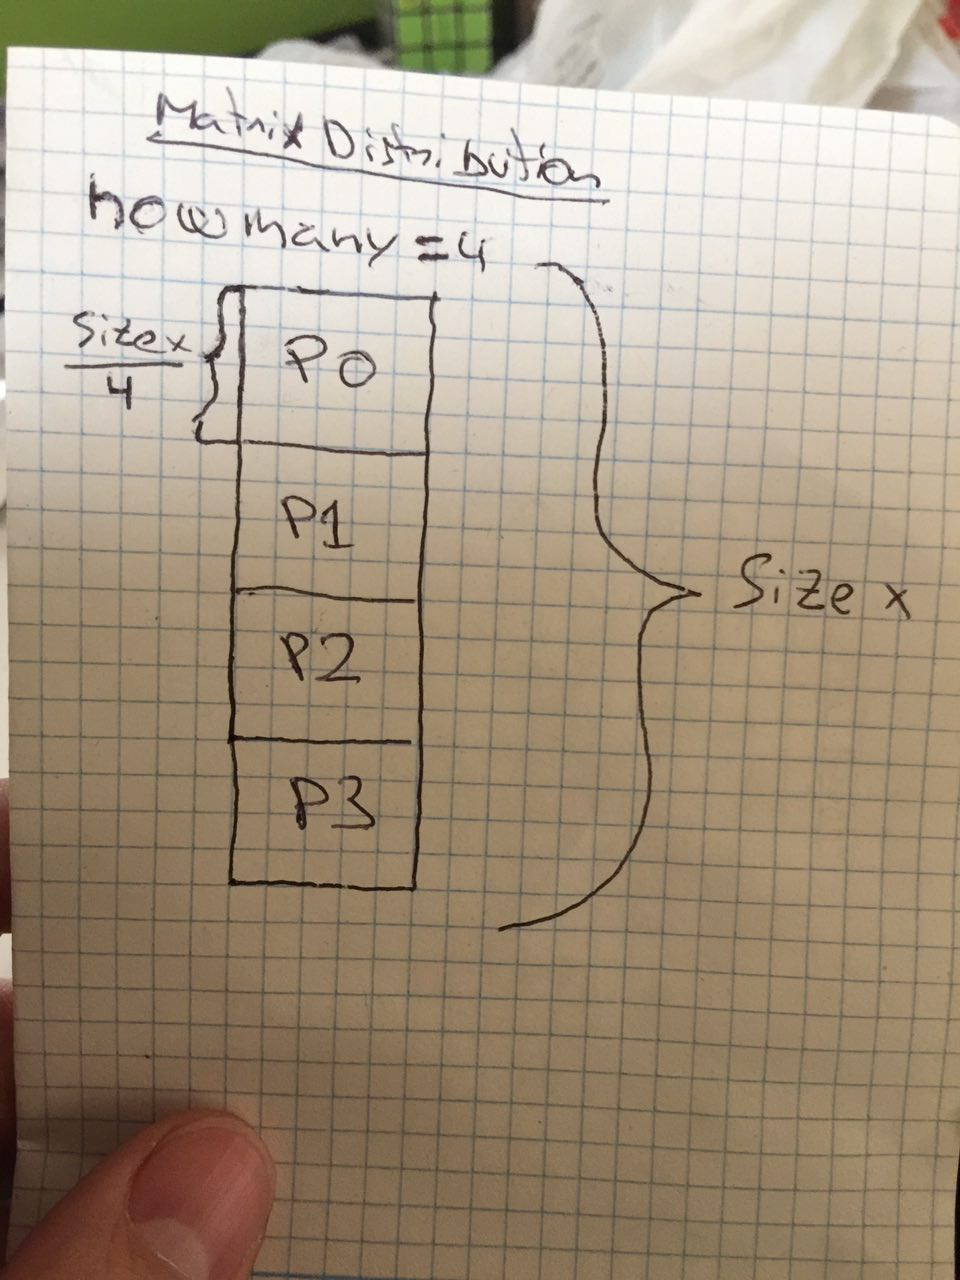 Matrix Distribution
howmany = 4
Sizex
4
P0
P1
P2
P3
Size x